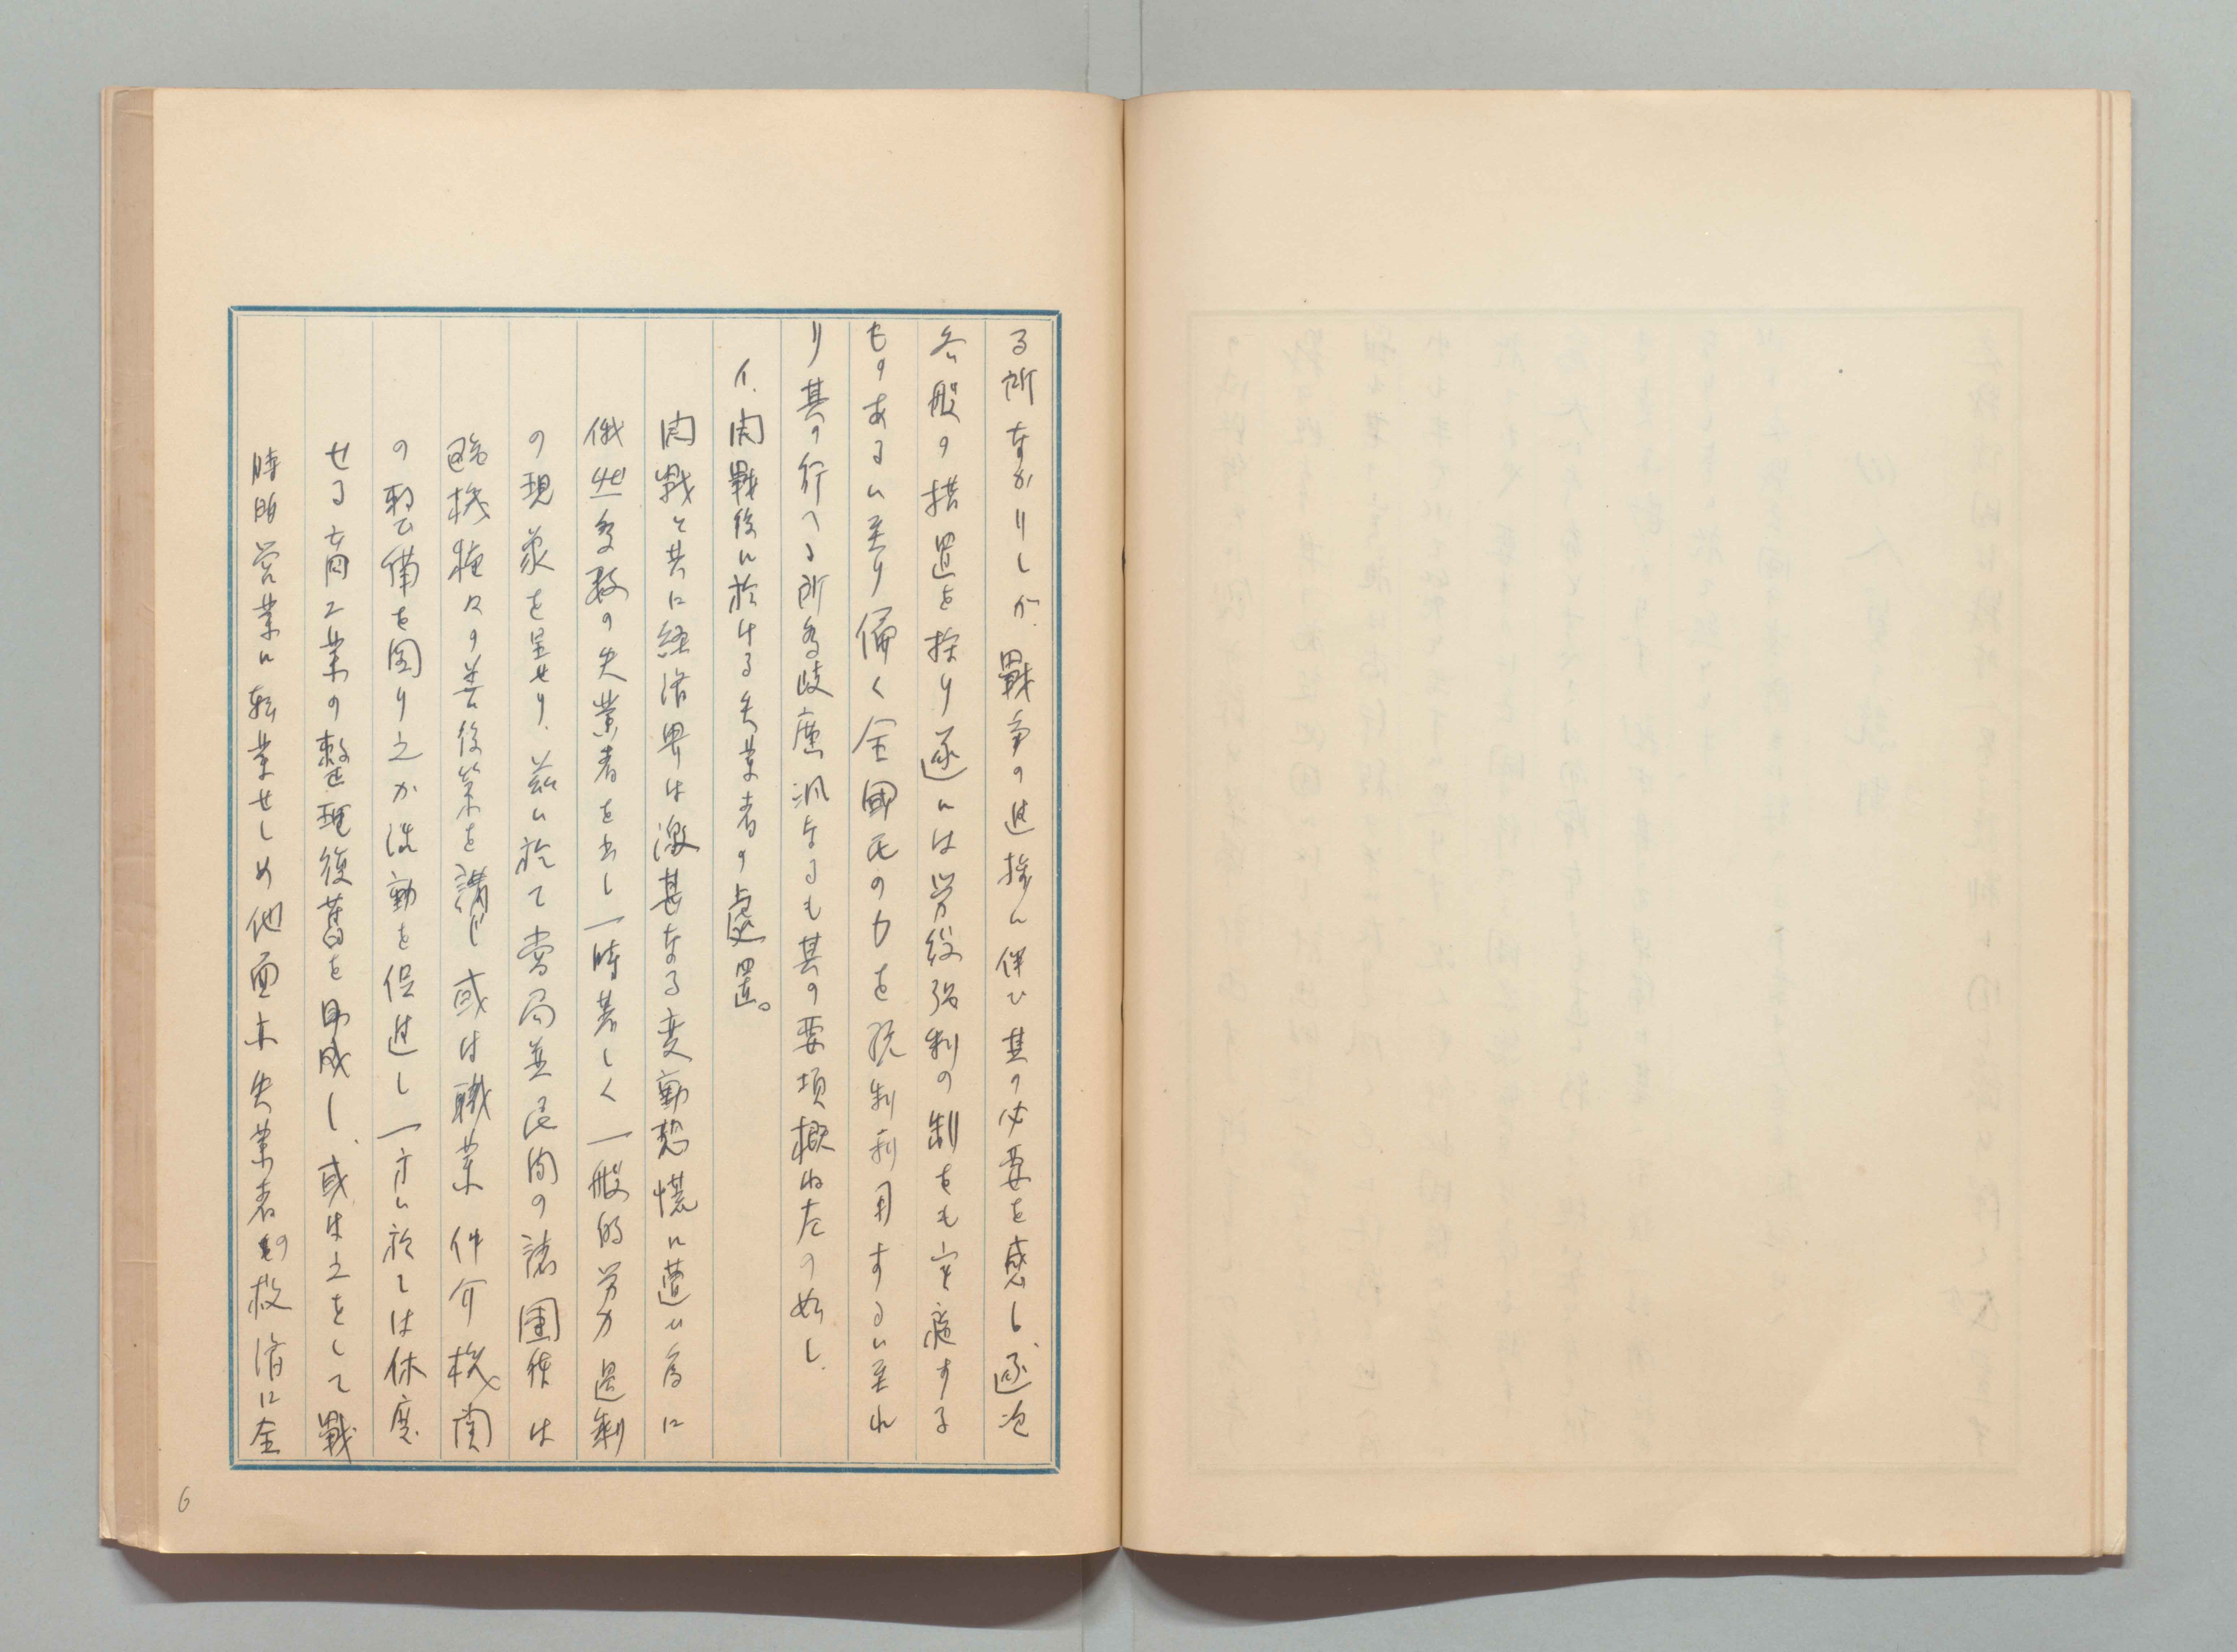 る所なかりしが戰争の進捗に伴ひ其の必要を感し、逐次
各般の措置を採り遂には労役强制の制をも実施する
ものあるに至り偏く全國民の力を統制利用するに至れ
り其の行へる所多岐廣汎なるも其の要項概ね左の如し
イ.開戰後に於ける失業者の處置。
開戰と共に経済界は激甚なる変動恐慌に遭ひ為に
俄然多数の失業者を出し一時著しく一般的労力過剰
の現象を呈せり、茲に於て当局並民間の諸團体は
臨機種々の善後策を講じ或は職業仲介機関
の整備を図り之か活動を促進し一方に於ては休廃
せる商工業の整理復舊を助成し、或は之をして戰
時的営業に転業せしめ他面亦失業者の救済に全
6